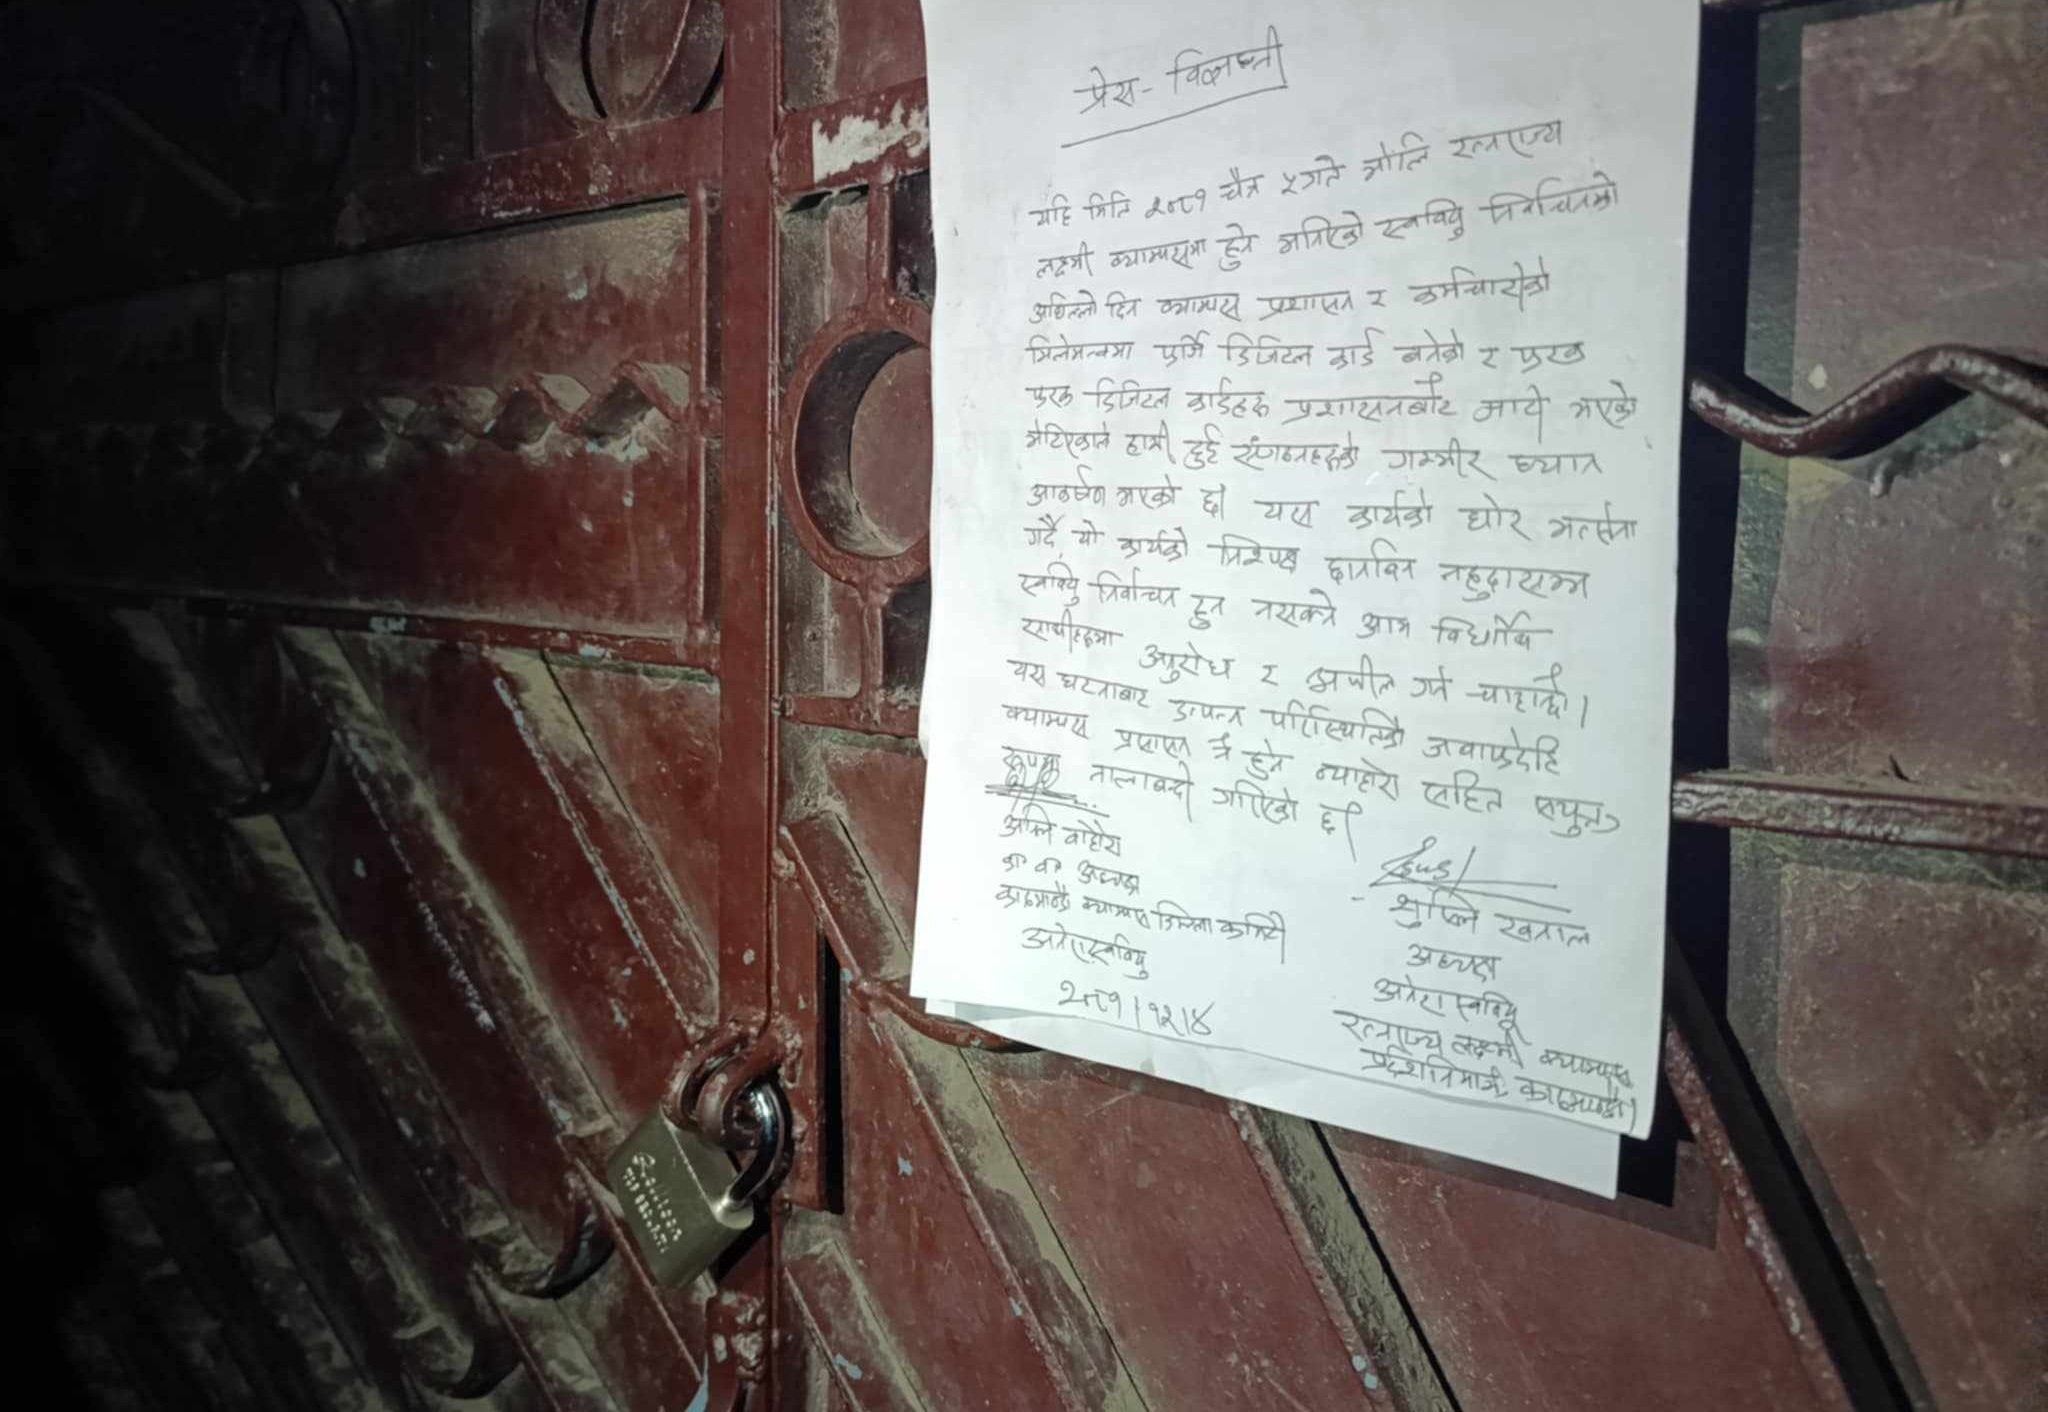 प्रेस - विज्ञप्ती
यहि मिति २०८१ चैत्र ५ गते भोलि रत्नराज्य
लक्ष्मी क्याम्पसमा हुन भनिएको स्ववियु निर्वाचनको
अघिल्लो दिन क्याम्पस प्रशासन र कर्मचारीको
मिलेमत्वमा फर्जि डिजिटल कार्ड बनेको र फरक
फरक डिजिटल कार्डहरू प्रशासनबाट जारी भएको
भेटिएकाले हामी दुई संगठनहरूको गम्भीर ध्यान
आकर्षण भएको छ। यस कार्यको घोर भर्त्सना
गर्दै, यो कार्यको निश्पक्ष छानविन नहुदासम्म
स्ववियु निर्वाचन हुन नसक्ने आम विद्यार्थी
साथीहरूमा अनुरोध र अपील गर्न चाहान्छौ।
यस घटनाबाट उत्पन्न परिस्थितिको जवाफदेहि
क्याम्पस प्रसासन नै हुने व्याहोरा सहित सयुक्त
रूपमा तालाबन्दी गरिएको छ।
का. वा. अध्यक्ष
काठमाडौ क्याम्पस जिल्ला कमिटी
अनेरास्ववियु
२०८१।१२।४
खनाल
अध्यक्ष
अनेरास्ववियू
रत्नराज्य लक्ष्मी क्याम्पस
प्रर्दशनीमार्ग, काठमाण्डौ।